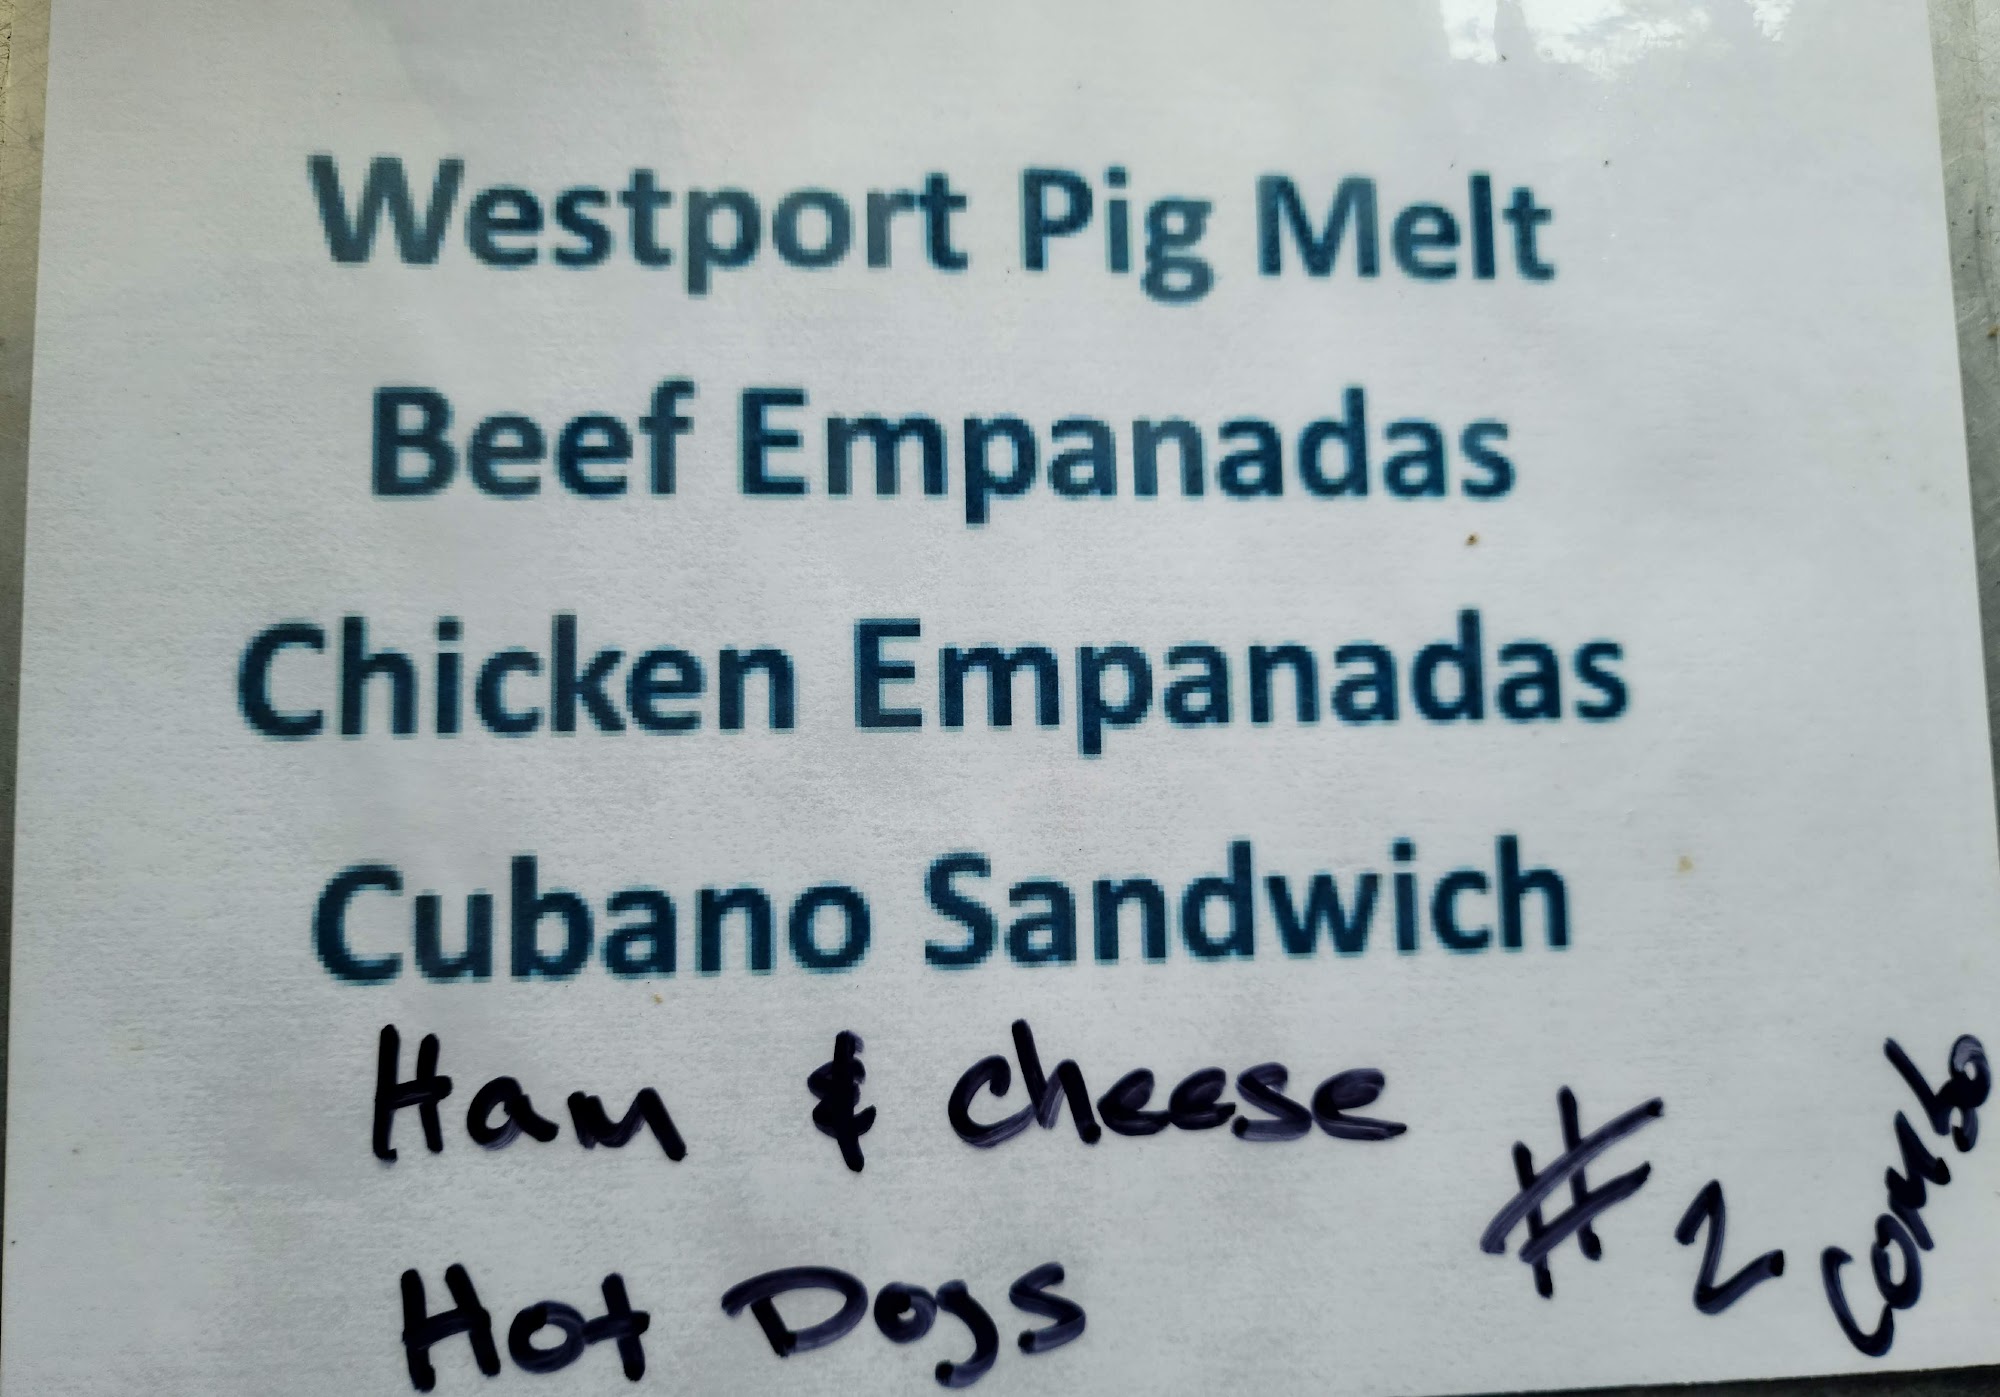 Westport Pig Melt
Beef Empanadas
Chicken Empanadas
Cubano Sandwich
Ham & cheese
#2 combo
Hot Dogs